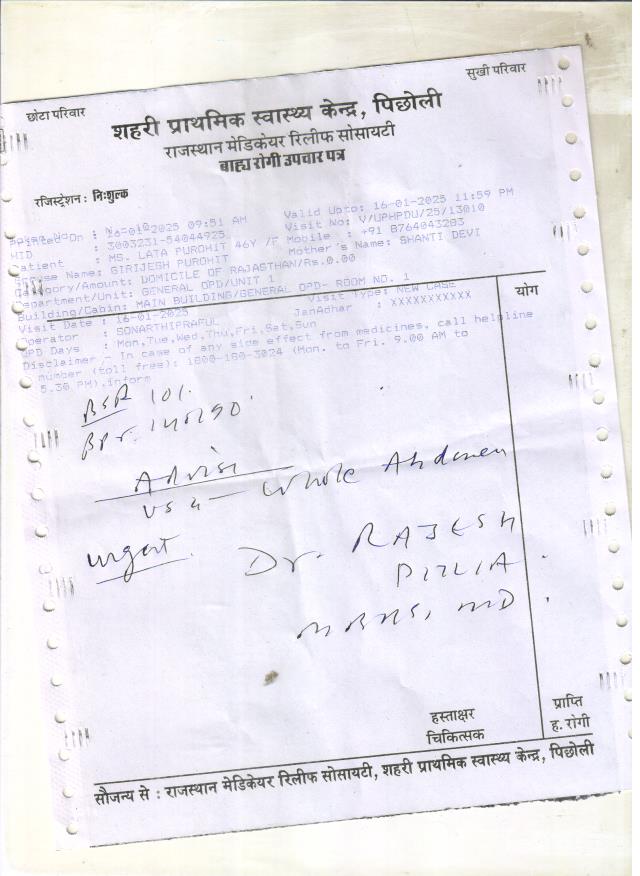 छोटा परिवार
सुखी परिवार
शहरी प्राथमिक स्वास्थ्य केन्द्र, पिछोली
राजस्थान मेडिकेयर रिलीफ सोसायटी
बाह्य रोगी उपचार पत्र
रजिस्ट्रेशन: निःशुल्क
Printed On : 16-01-2025 09:51 AM Valid Upto: 16-01-2025 11:59 PM
HID : 3003231-54044925 Visit No: V/UPHPDU/25/13010
Patient : MS. LATA PUROHIT 46Y /F Mobile : +91 8764043283
Spouse Name: GIRIJESH PUROHIT Mother's Name: SHANTI DEVI
Category/Amount: DOMICILE OF RAJASTHAN/Rs.0.00
Department/Unit: GENERAL OPD/UNIT 1
Building/Cabin: MAIN BUILDING/GENERAL OPD- ROOM NO. 1
Visit Date : 16-01-2025 Visit Type: NEW CASE
Operator : SONARTHIPRAFUL JanAdhar : XXXXXXXXXXX
OPD Days : Mon,Tue,Wed,Thu,Fri,Sat,Sun
Disclaimer - In case of any side effect from medicines, call helpline
number (toll free): 1800-180-3024 (Mon. to Fri. 9.00 AM to
5.30 PM),inform
योग
101
140/90
Advise
Whole Abdomen
urgent
Dr. RAJESH
MBBS, MD
हस्ताक्षर
चिकित्सक
प्राप्ति
ह. रोगी
सौजन्य से : राजस्थान मेडिकेयर रिलीफ सोसायटी, शहरी प्राथमिक स्वास्थ्य केन्द्र, पिछोली